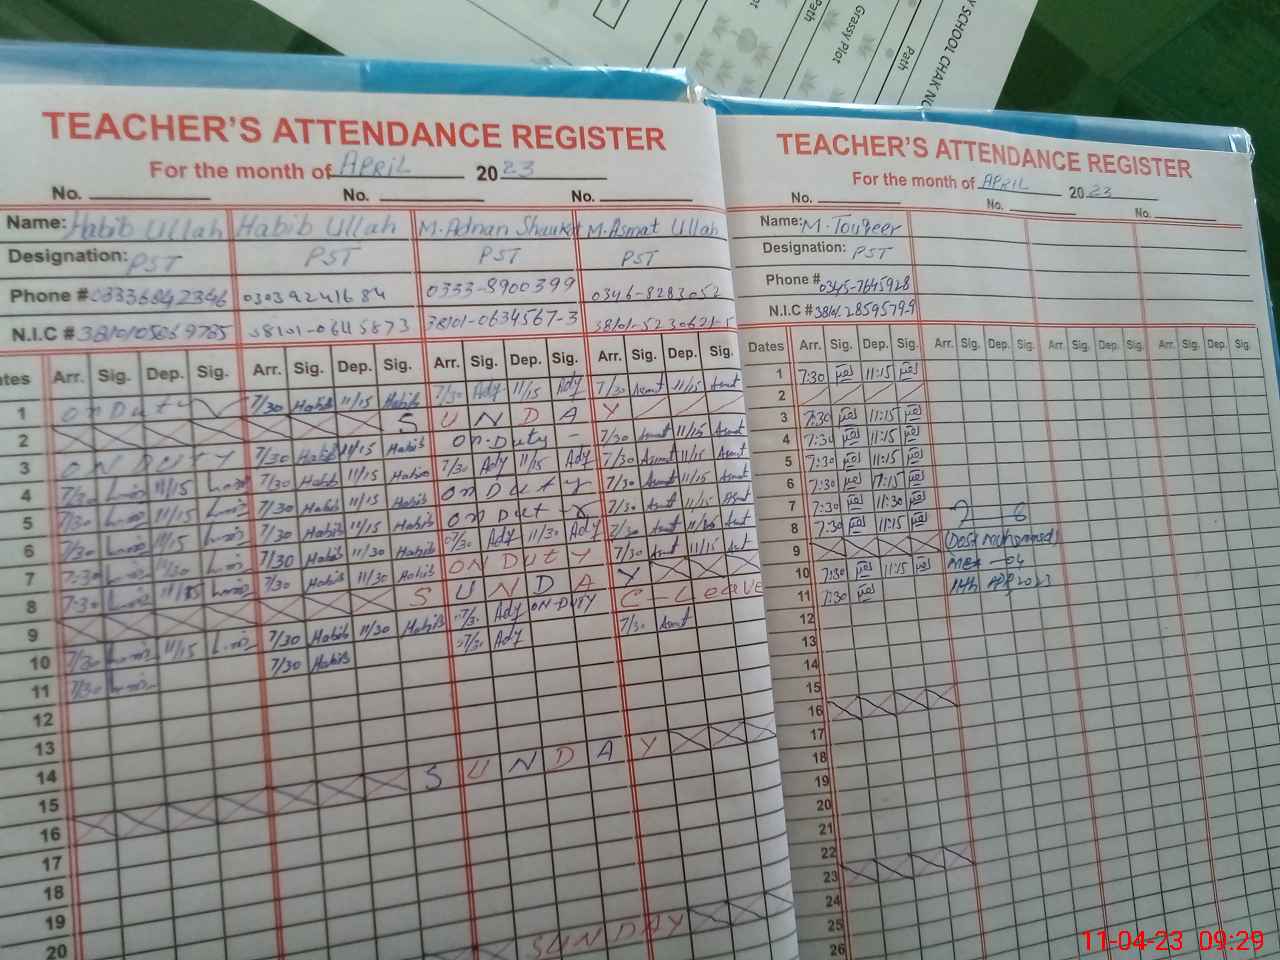 Y SCHOOL CHAK NO
Path
Grassy Plot
Path
TEACHER'S ATTENDANCE REGISTER
For the month of APRIL 2023
No. No. No.
Name: Habib Ullah Habib Ullah M. Adnan Shaukat M. Asmat Ullah
Designation: PST PST PST PST
Phone # 03336842346 03039241684 0333-8900399 0346-8283052
N.I.C # 38101-0634567-3
ates Arr. Sig. Dep. Sig. Arr. Sig. Dep. Sig. Arr. Sig. Dep. Sig. Arr. Sig. Dep. Sig.
1 on Duty 7/30 Habib 11/15 Habib 7/30 Adj 11/15 Adj 7/30 Asmt 11/15 Asmt
2 S U N D A Y
3 ON DUTY 7/30 Habib 11/15 Habib on-Duty - 7/30 Asmt 11/15 Asmt
4 7/30 11/15 7/30 Habib 11/15 Habib 7/30 Adj 11/15 Adj 7/30 Asmt 11/15 Asmt
5 7/30 11/15 7/30 Habib 11/15 Habib on Duty 7/30 Asmt 11/15 Asmt
6 7/30 11/15 7/30 Habib 11/15 Habib on Duty 7/30 Asmt 11/15 Asmt
7 7:30 11/30 7/30 Habib 11/30 Habib 7/30 Adj 11/30 Adj 7/30 Asmt 11/30 Asmt
8 7:30 11/15 7/30 Habib 11/30 Habib ON DUTY 7/30 Asmt 11/15 Asmt
9 S U N D A Y
10 7/30 11/15 7/30 Habib 11/30 Habib 7/30 Adj ON-DUTY C-Leave
11 7/30 7/30 Habib 7/30 Adj 7/30 Asmt
12
13
14
15
16 S U N D A Y
17
18
19
20
SUNDAY
TEACHER'S ATTENDANCE REGISTER
For the month of APRIL 2023
No. No. No.
Name: M. Touqeer
Designation: PST
Phone # 0345-7645928
N.I.C #
Dates Arr. Sig. Dep. Sig. Arr. Sig. Dep. Sig. Arr. Sig. Dep. Sig. Arr. Sig. Dep. Sig.
1 7:30 11:15
2
3 7:30 11:15
4 7:30 11:15
5 7:30 11:15
6 7:30 11:15
7 7:30 11:30
8 7:30 11:15
9 (Dost Mohammad)
10 7:30 11:15 MEA - 04
11 7:30 11th APR 2023
12
13
14
15
16
17
18
19
20
21
22
23
24
25
26
11-04-23 09:29